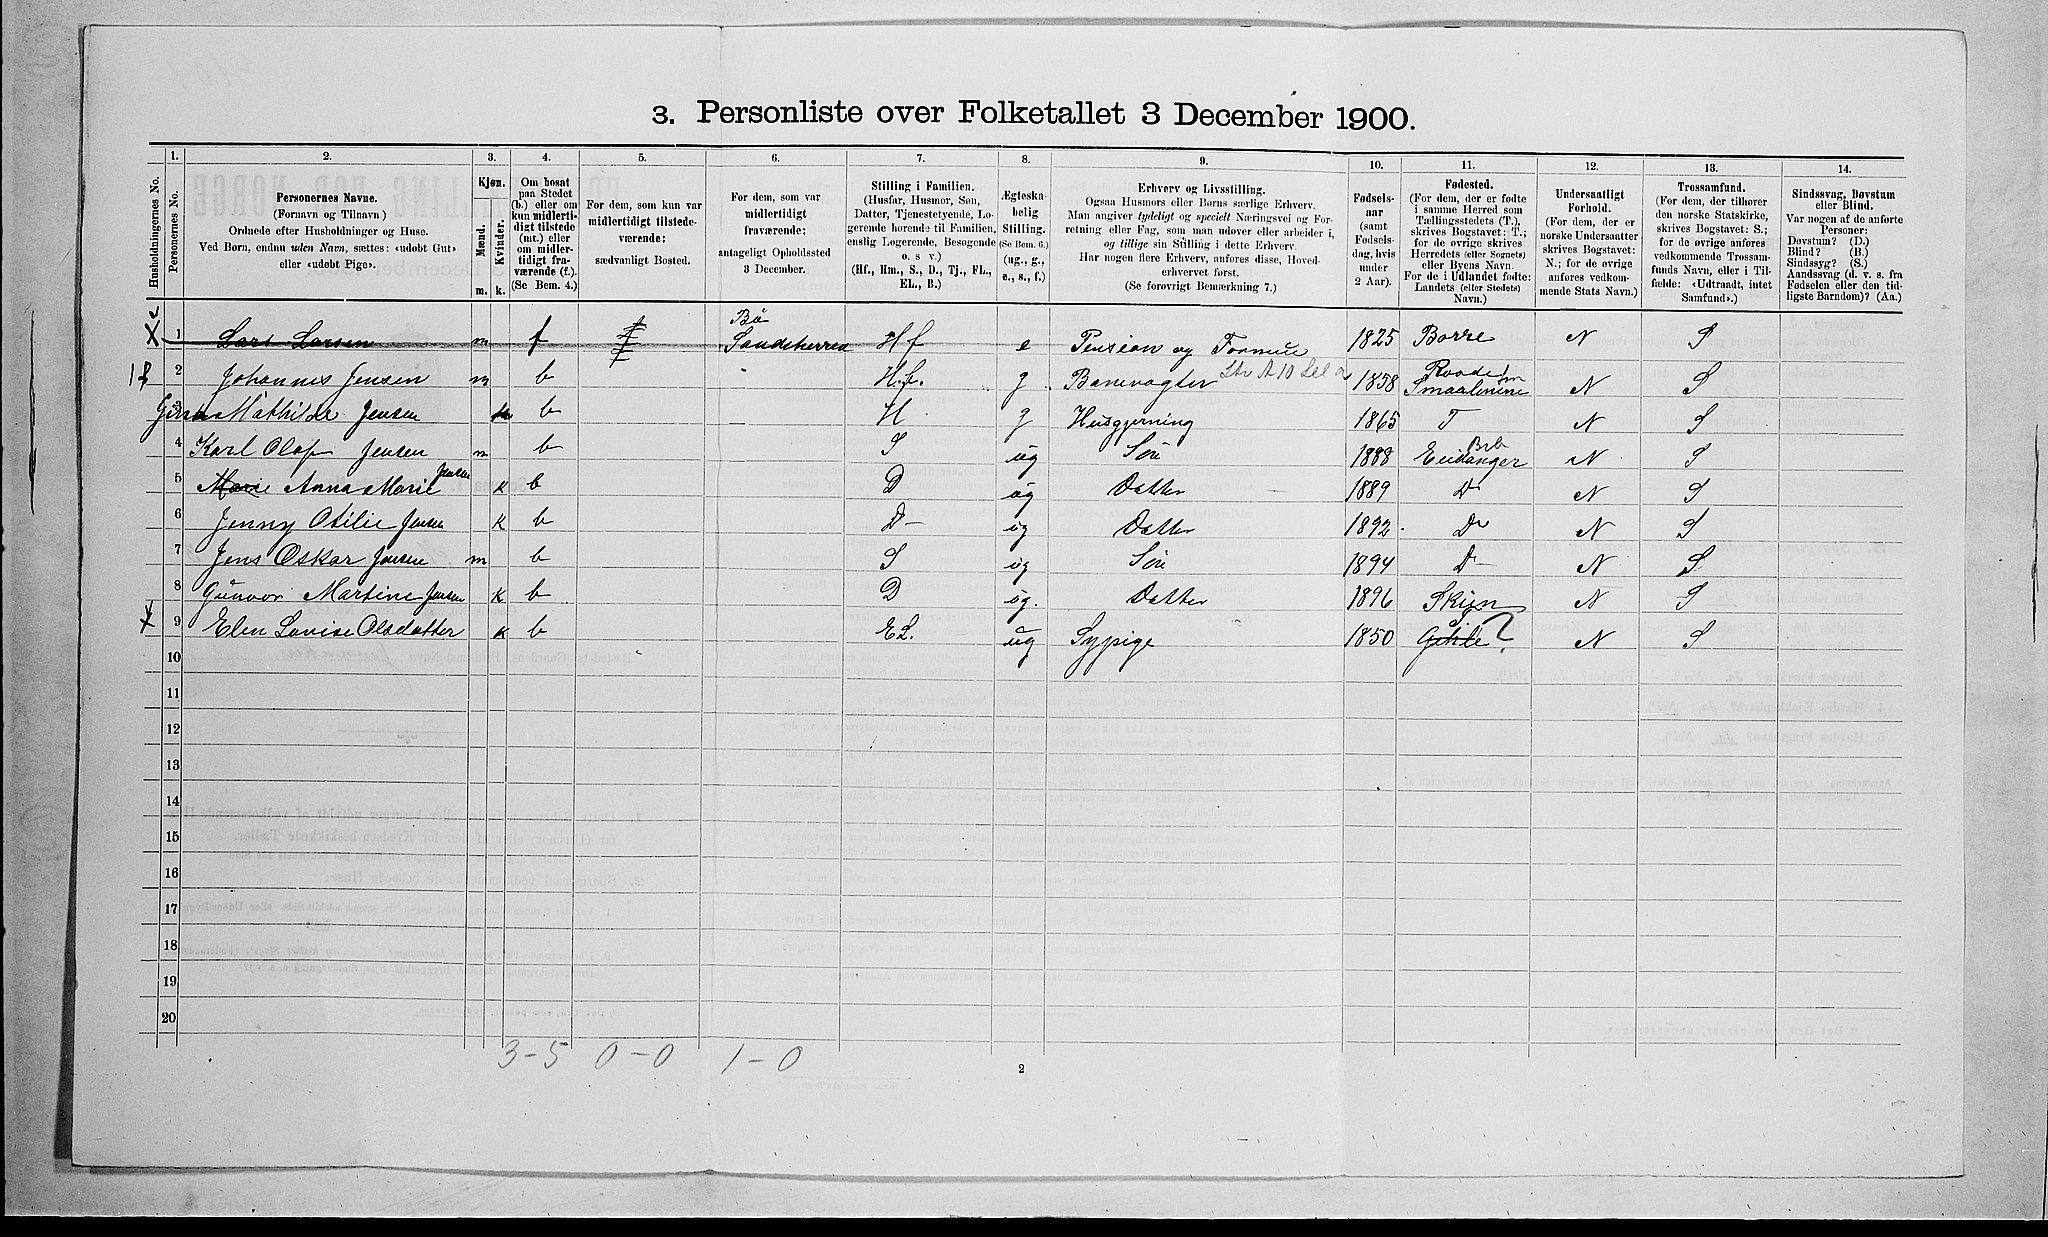 3. Personliste over Folketallet 3 December 1900.
1. 2. 3. 4. 5. 6. 7. 8. 9. 10. 11. 12. 13. 14.
Husholdningernes No.
Personernes No.
Personernes Navne.
(Fornavn og Tilnavn)
Ordnede efter Husholdninger og Huse.
Ved Børn, endnu uden Navn, sættes: «udøbt Gut»
eller «udøbt Pige».
Kjøn.
Mænd.
Kvinder.
m. k.
Om bosat
paa Stedet
(b.) eller om
kun midlerti-
digt tilstede
(mt.) eller
om midler-
tidigt fra-
værende (f.).
(Se Bem. 4.)
For dem, som kun var
midlertidigt tilstede-
værende:
sædvanligt Bosted.
For dem, som var
midlertidigt
fraværende:
antageligt Opholdssted
3 December.
Stilling i Familien.
(Husfar, Husmor, Søn,
Datter, Tjenestetyende, Lo-
gerende hørende til Familien,
enslig Logerende, Besøgende
o. s v.)
(Hf., Hm., S., D., Tj., FL.,
EL., B.)
Ægteska-
belig
Stilling.
(Se Bem. 6.)
(ug., g.,
e., s., f.)
Erhverv og Livsstilling.
Ogsaa Husmors eller Børns særlige Erhverv.
Man angiver tydeligt og specielt Næringsvei og For-
retning eller Fag, som man udøver eller arbeider i,
og tillige sin Stilling i dette Erhverv.
Har nogen flere Erhverv, anføres disse, Hoved-
erhvervet først.
(Se forøvrigt Bemærkning 7.)
Fødsels-
aar
(samt
Fødsels-
dag, hvis
under
2 Aar).
Fødested.
(For dem, der er fødte
i samme Herred som
Tællingsstedets (T.),
skrives Bogstavet: T.;
for de øvrige skrives
Herredets (eller Sognets)
eller Byens Navn.
For de i Udlandet fødte:
Landets (eller Stedets)
Navn.)
Undersaatligt
Forhold.
(For dem, der er
norske Undersaatter
skrives Bogstavet:
N.; for de øvrige
anføres vedkom-
mende Stats Navn.)
Trossamfund.
(For dem, der tilhører
den norske Statskirke,
skrives Bogstavet: S.;
for de øvrige anføres
vedkommende Trossam-
funds Navn, eller i Til-
fælde: «Udtraadt, intet
Samfund».)
Sindssvag, Døvstum
eller Blind.
Var nogen af de anførte
Personer:
Døvstum? (D.)
Blind? (B.)
Sindssyg? (S.)
Aandssvag (d. v. s. fra
Fødselen eller den tid-
ligste Barndom)? (Aa.)
1 Lars Larsen m f Bø Sandeherred Hf e Pension og Formue 1825 Borre N S
2 Johannes Jensen m b H.f. g Banevogter 1858 Raade Smaalenene N S
3 Gina Mathilde Jensen k b H g Husgjerning 1865 T N S
4 Karl Olaf Jensen m b S ug Søn 1888 Eidanger Brb N S
5 Marie Anna Marie Jensen k b D ug Datter 1889 Do N S
6 Jenny Otilie Jensen k b D ug Datter 1892 Do N S
7 Jens Oskar Jensen m b S ug Søn 1894 D N S
8 Gunvor Martine Jensen k b D ug. Datter 1896 Skien N S
9 Elen Lovise Olsdatter k b EL. ug Sypige 1850 ? N S
10
11
12
13
14
15
16
17
18
19
20
3-5 0-0 1-0
2